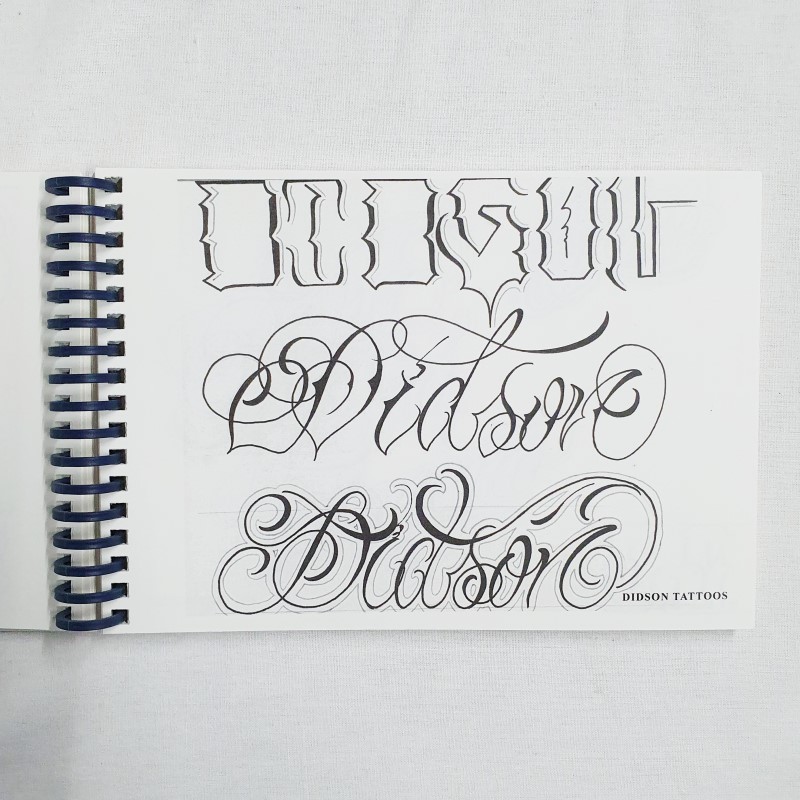 DIDSON
Didson
Didson
DIDSON TATTOOS